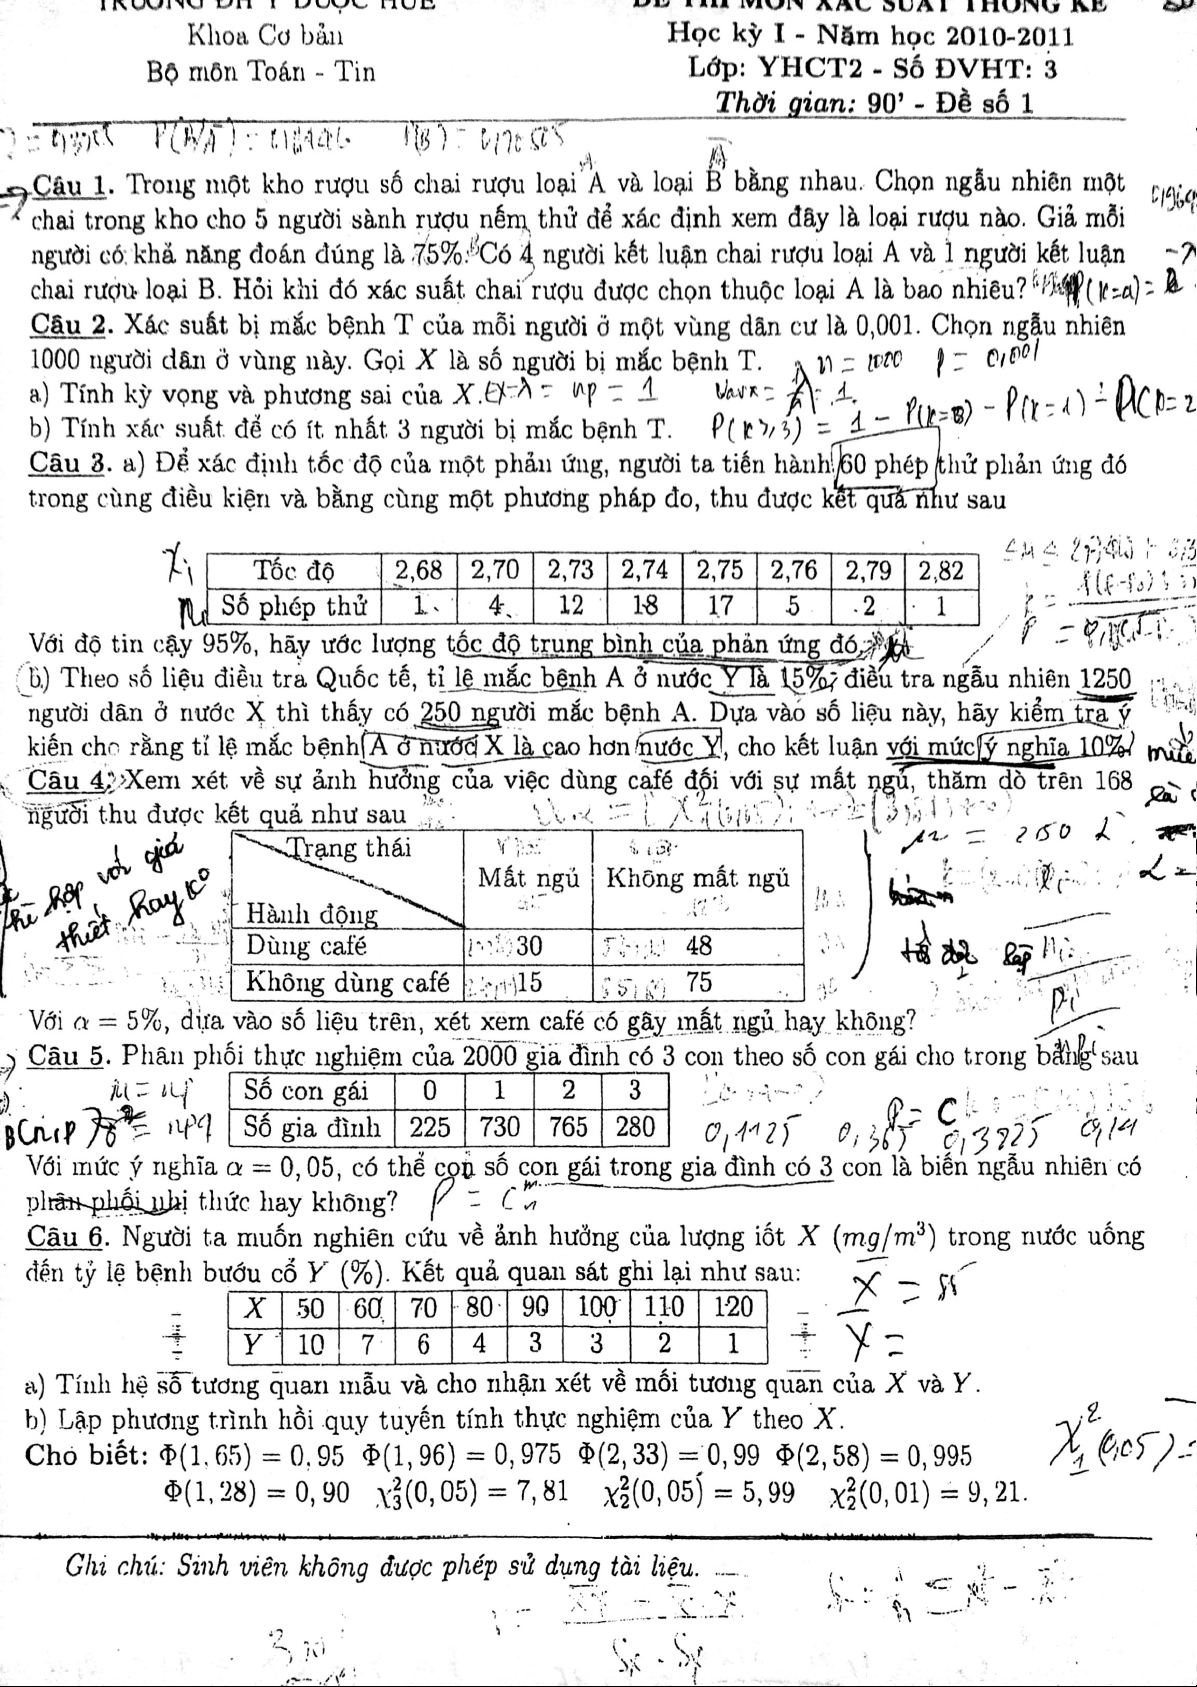 TRƯỜNG ĐH Y DƯỢC HUẾ
Khoa Cơ bản
Bộ môn Toán - Tin
ĐỀ THI MÔN XÁC SUẤT THỐNG KÊ
Học kỳ I - Năm học 2010-2011
Lớp: YHCT2 - Số ĐVHT: 3
Thời gian: 90' - Đề số 1
Câu 1. Trong một kho rượu số chai rượu loại A và loại B bằng nhau. Chọn ngẫu nhiên một
chai trong kho cho 5 người sành rượu nếm thử để xác định xem đây là loại rượu nào. Giả mỗi
người có khả năng đoán đúng là 75%. Có 4 người kết luận chai rượu loại A và 1 người kết luận
chai rượu loại B. Hỏi khi đó xác suất chai rượu được chọn thuộc loại A là bao nhiêu?
Câu 2. Xác suất bị mắc bệnh T của mỗi người ở một vùng dân cư là 0,001. Chọn ngẫu nhiên
1000 người dân ở vùng này. Gọi X là số người bị mắc bệnh T. n = 1000 p = 0,001
a) Tính kỳ vọng và phương sai của X. EX = λ = np = 1
b) Tính xác suất để có ít nhất 3 người bị mắc bệnh T.
Câu 3. a) Để xác định tốc độ của một phản ứng, người ta tiến hành 60 phép thử phản ứng đó
trong cùng điều kiện và bằng cùng một phương pháp đo, thu được kết quả như sau
Xi Tốc độ 2,68 2,70 2,73 2,74 2,75 2,76 2,79 2,82
ni Số phép thử 1 4 12 18 17 5 2 1
Với độ tin cậy 95%, hãy ước lượng tốc độ trung bình của phản ứng đó.
b) Theo số liệu điều tra Quốc tế, tỉ lệ mắc bệnh A ở nước Y là 15%; điều tra ngẫu nhiên 1250
người dân ở nước X thì thấy có 250 người mắc bệnh A. Dựa vào số liệu này, hãy kiểm tra ý
kiến cho rằng tỉ lệ mắc bệnh A ở nước X là cao hơn nước Y, cho kết luận với mức ý nghĩa 10%.
Câu 4. Xem xét về sự ảnh hưởng của việc dùng café đối với sự mất ngủ, thăm dò trên 168
người thu được kết quả như sau
Trạng thái
Mất ngủ Không mất ngủ
Hành động
Dùng café 30 48
Không dùng café 15 75
Với α = 5%, dựa vào số liệu trên, xét xem café có gây mất ngủ hay không?
Câu 5. Phân phối thực nghiệm của 2000 gia đình có 3 con theo số con gái cho trong bảng sau
Số con gái 0 1 2 3
Số gia đình 225 730 765 280
0,1125 0,365 0,3825 0,14
Với mức ý nghĩa α = 0,05, có thể coi số con gái trong gia đình có 3 con là biến ngẫu nhiên có
phân phối nhị thức hay không?
Câu 6. Người ta muốn nghiên cứu về ảnh hưởng của lượng iốt X (mg/m³) trong nước uống
đến tỷ lệ bệnh bướu cổ Y (%). Kết quả quan sát ghi lại như sau:
X 50 60 70 80 90 100 110 120
Y 10 7 6 4 3 3 2 1
a) Tính hệ số tương quan mẫu và cho nhận xét về mối tương quan của X và Y.
b) Lập phương trình hồi quy tuyến tính thực nghiệm của Y theo X.
Cho biết: Φ(1,65) = 0,95 Φ(1,96) = 0,975 Φ(2,33) = 0,99 Φ(2,58) = 0,995
Φ(1,28) = 0,90 χ²₃(0,05) = 7,81 χ²₂(0,05) = 5,99 χ²₂(0,01) = 9,21.
Ghi chú: Sinh viên không được phép sử dụng tài liệu.